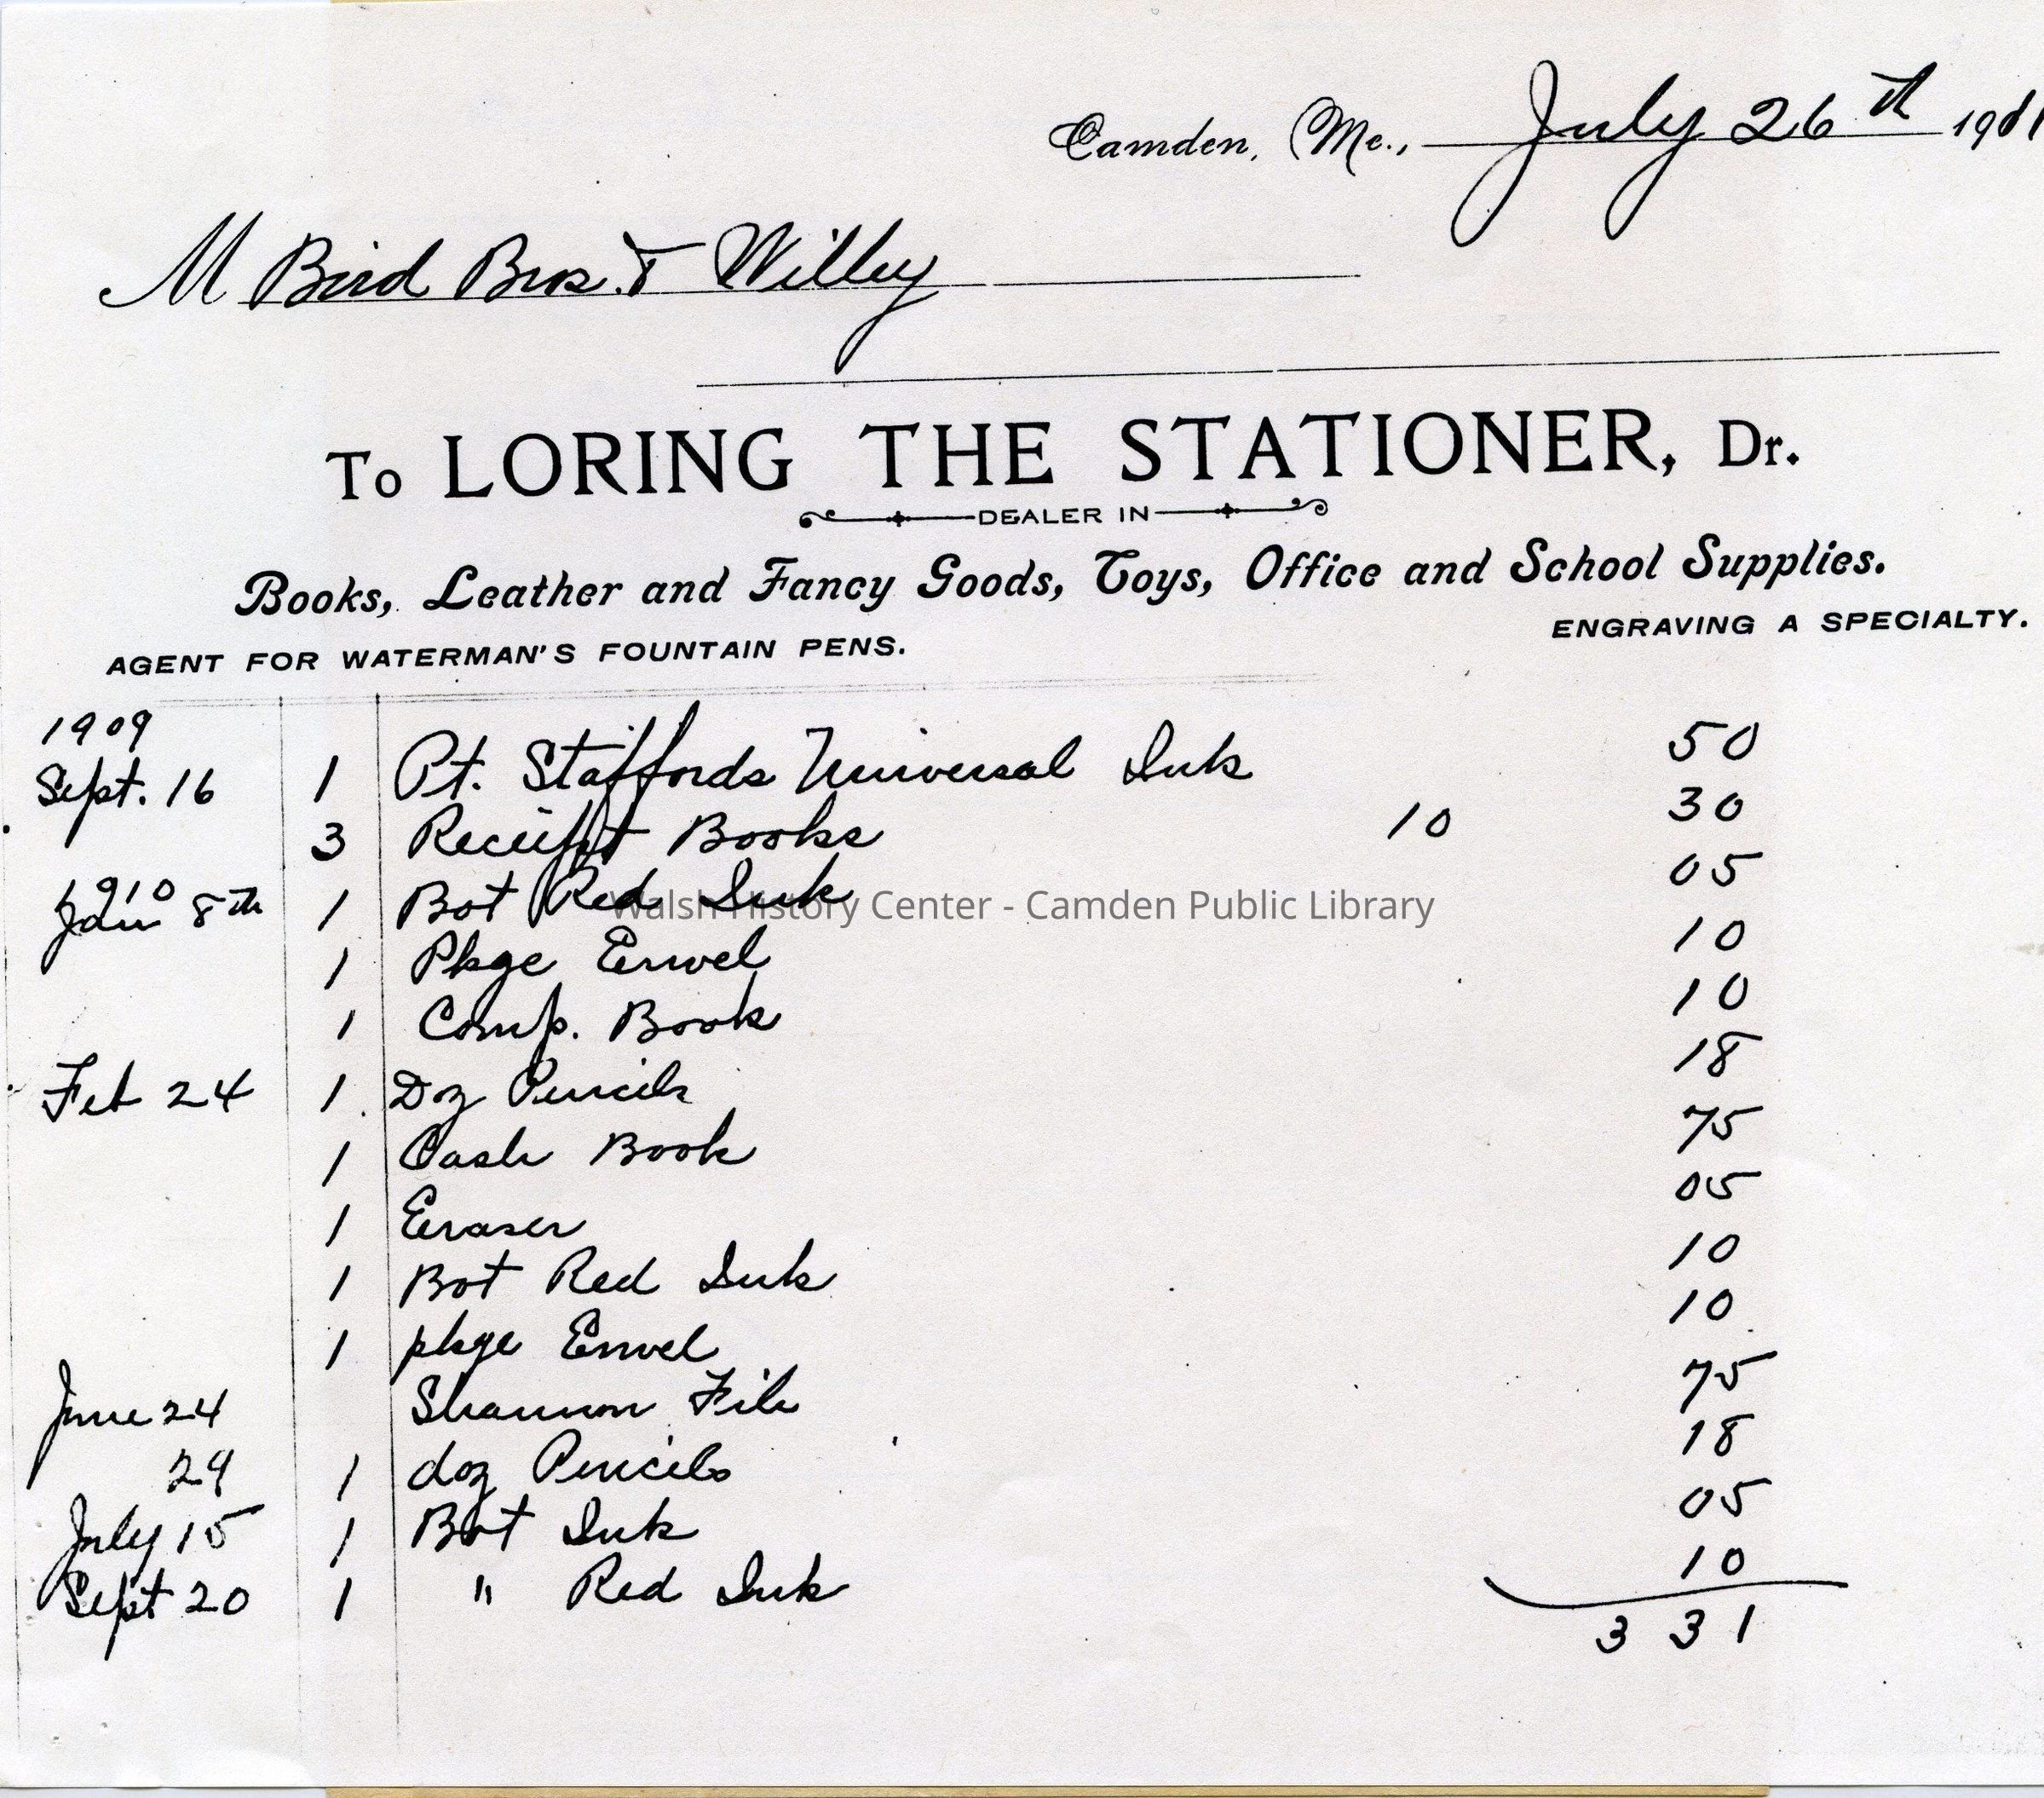 Camden, Me., July 26th 1911
M Bird Bros. & Willey
To LORING THE STATIONER, Dr.
DEALER IN
Books, Leather and Fancy Goods, Toys, Office and School Supplies.
AGENT FOR WATERMAN'S FOUNTAIN PENS. ENGRAVING A SPECIALTY.
1909
Sept. 16 1 Pt. Staffords Universal Ink 50
3 Receipt Books 10 30
1910
Jan 8th 1 Bot Red Ink 05
Walsh History Center - Camden Public Library
1 Pkge Envel 10
1 Comp. Book 10
Feb 24 1 Doz Pencils 18
1 Cash Book 75
1 Eraser 05
1 Bot Red Ink 10
1 pkge Envel 10
June 24 Shannon File 75
29 1 doz Pencils 18
July 15 1 Bot Ink 05
Sept 20 1 " Red Ink 10
3 31